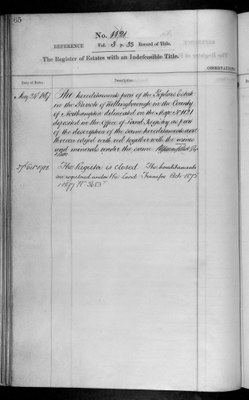 65
No. 1121
REFERENCE Vol. 3 p. 53 Record of Title.
The Register of Estates with an Indefeasible Title.
OBSERVATIONS
Date of Entry. Description.
May 24th 1867 The hereditaments part of the Estate
in the Parish of Wellingborough in the County
of Northampton delineated on the Map No 1121
deposited in the Office of Land Registry as part
of the description of the same hereditaments and
thereon edged with red together with the mines
and minerals under the same
27th Oct The Register is closed. The hereditaments
are registered under the Land Transfer Act 1875